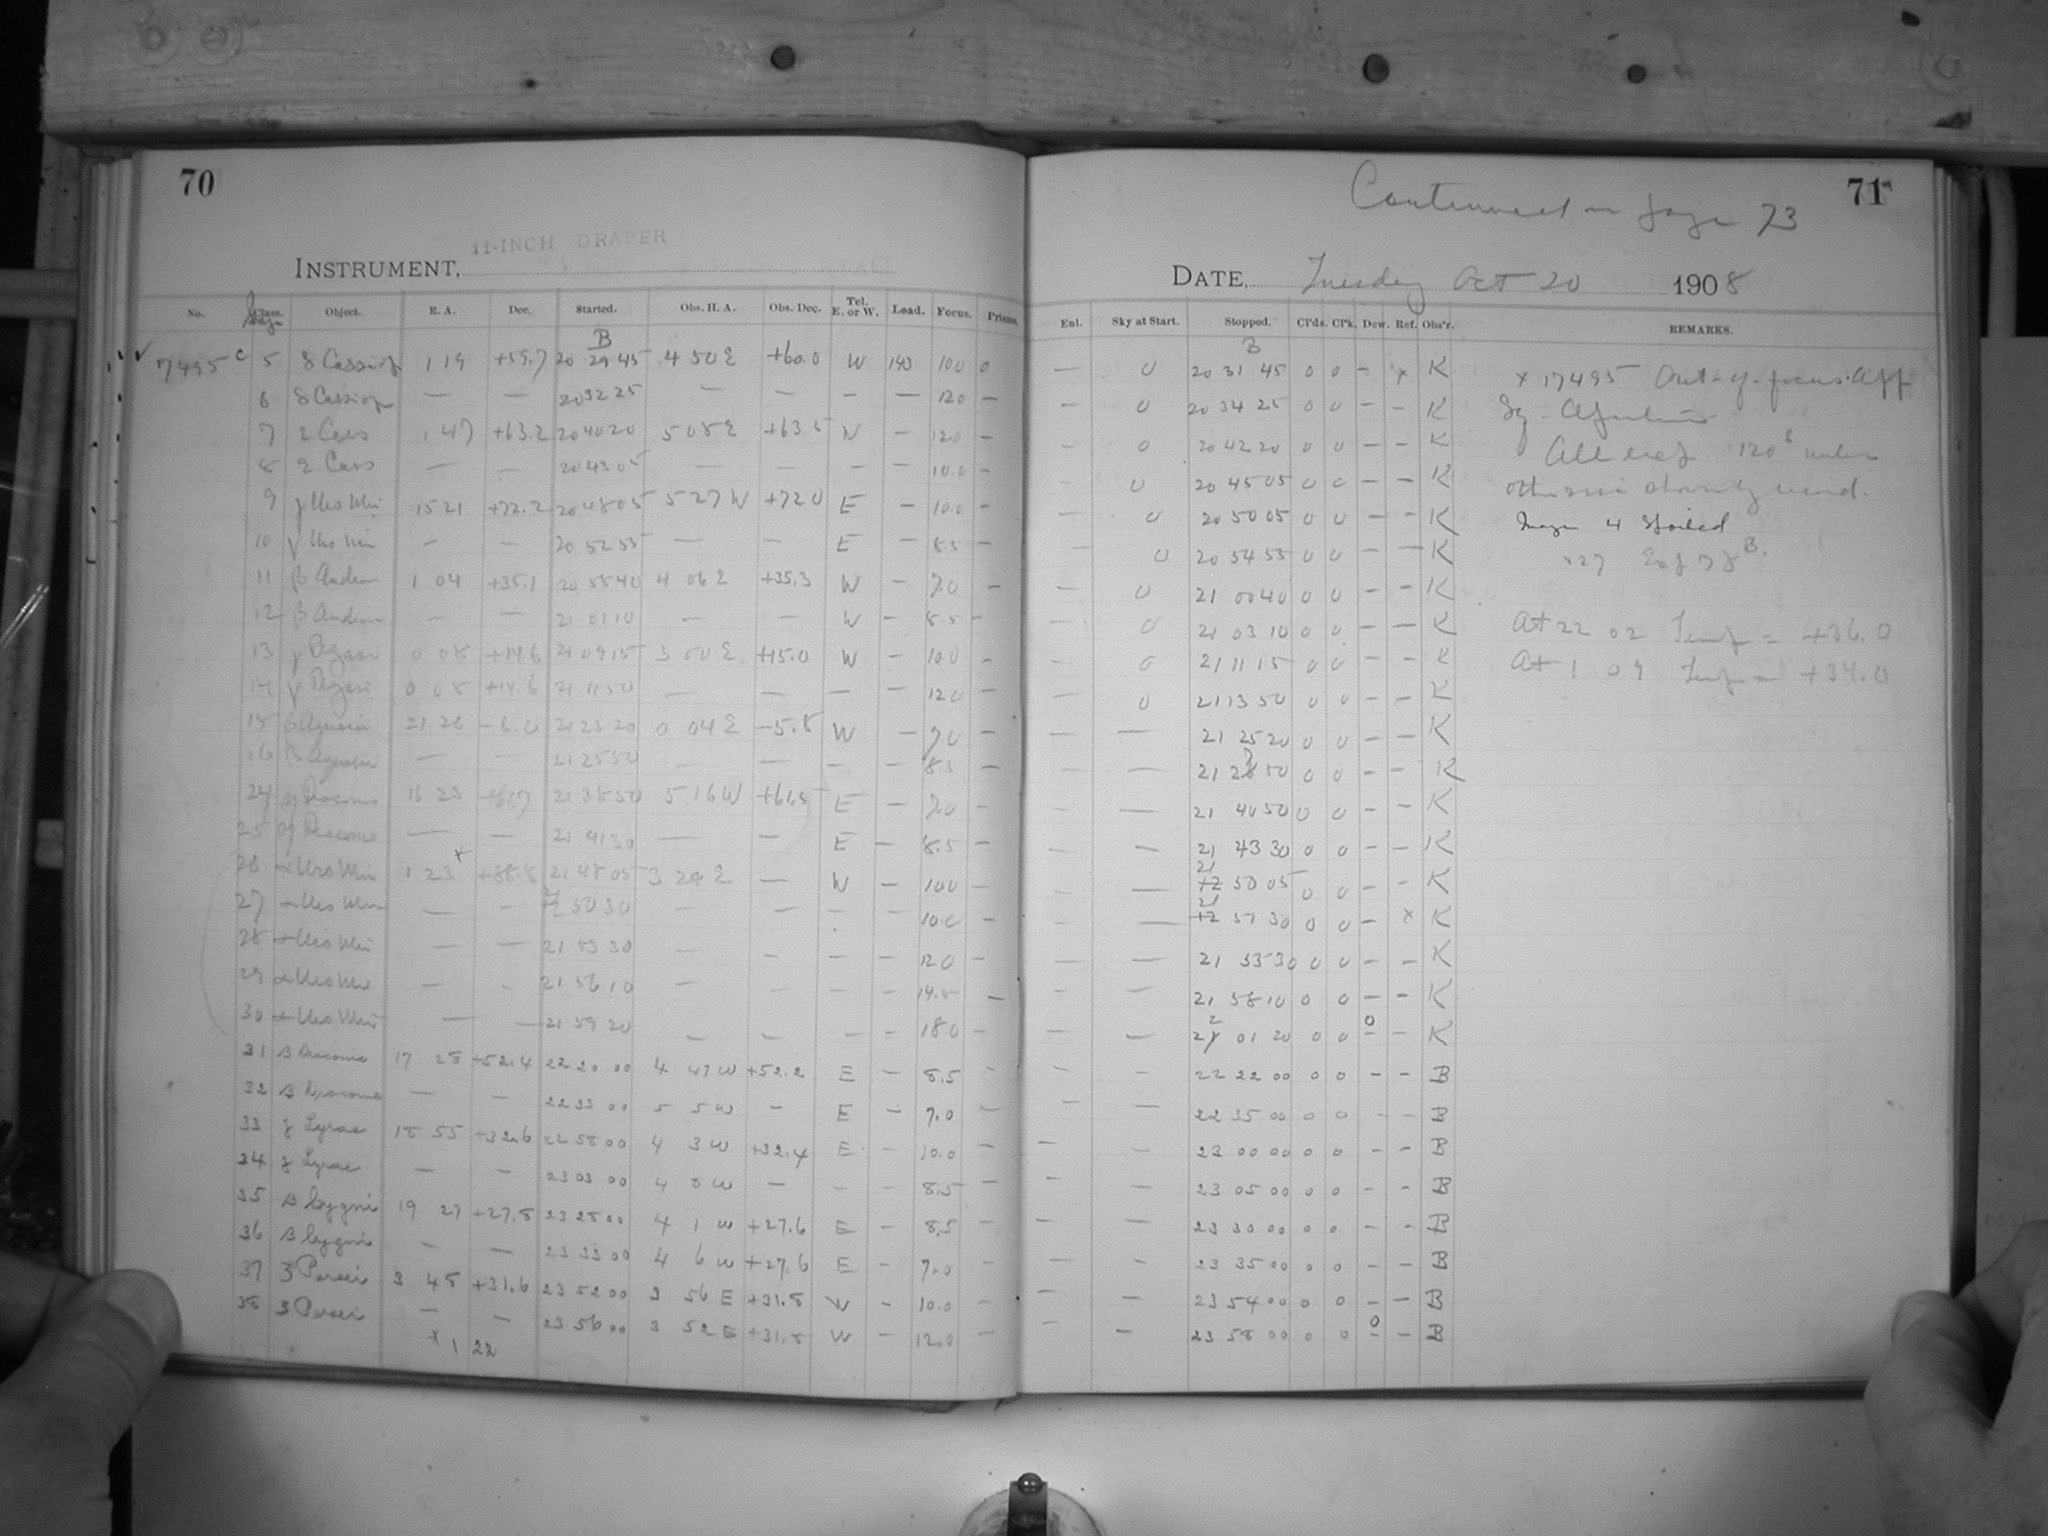 70
11-INCH DRAPER
INSTRUMENT,
No. Class. Object. R. A. Dec. Started. Obs. H. A. Obs. Dec. Tel. E. or W. Load. Focus. Prisms.
B
5 δ Cassiop 1 19 +59.7 20 29 45 4 50 E +60.0 W 100 0
6 δ Cassiop — — 20 32 25 — — — — 12.0 —
7 ε Cass 1 47 +63.2 20 40 20 5 05 E +63.5 — 12.0 —
8 ε Cass — — 20 43 05 — — — 10.0 —
9 γ Urs Min 15 21 +72.2 20 48 05 5 27 W +72 0 E — 10.0 —
10 γ Urs Min — — 20 52 55 — — E — 8.5 —
11 β Androm 1 04 +35.1 20 58 40 4 06 E +35.3 W — 7.0 —
12 β Androm — — 21 01 10 — — W — 8.5 —
13 γ Pegasi 0 08 +14.6 21 09 15 3 00 E +15.0 W — 10.0 —
14 γ Pegasi 0 08 +14.6 21 11 50 — — — — 12.0 —
15 β Aquarii 21 26 -6.0 21 23 20 0 04 E -5.8 W — 7.0 —
16 β Aquarii — — 21 25 50 — — — — 8.5 —
24 η Draconis 16 23 +61.7 21 38 50 5 16 W +61.5 E — 7.0 —
25 η Draconis — — 21 41 30 — — E — 8.5 —
26 α Urs Min 1 23 x +88.8 21 48 05 3 29 E — W — 10.0 —
27 α Urs Min — — 21 50 30 — — — — 10.0 —
28 α Urs Min — — 21 53 30 — — — — 12.0 —
29 α Urs Min — — 21 56 10 — — — — 14.5 —
30 α Urs Min — — 21 59 20 — — — — 18.0 —
31 β Draconis 17 28 +52.4 22 20 00 4 47 W +52.2 E — 8.5 —
32 β Draconis — — 22 33 00 5 5 W — E — 7.0 —
33 γ Lyrae 18 55 +32.6 22 58 00 4 3 W +32.4 E — 10.0 —
34 γ Lyrae — — 23 03 00 4 8 W — — — 8.5 —
35 β Cygni 19 27 +27.8 23 28 00 4 1 W +27.6 E — 8.5 —
36 β Cygni — — 23 33 00 4 6 W +27.6 E — 7.0 —
37 ζ Persei 3 48 +31.6 23 52 00 3 56 E +31.8 W — 10.0 —
38 ζ Persei — — 23 56 00 3 52 E +31.8 W — 12.0 —
x 1 22
71
Continued on page 73
DATE, Tuesday Oct 20 1908
Enl. Sky at Start. Stopped. Cl'ds. Cl'k. Dew. Ref. Obs'r. REMARKS.
B
— 0 20 31 45 0 0 — x K
— 0 20 34 25 0 0 — — K
— 0 20 42 20 0 0 — — K
— 0 20 45 05 0 0 — — K
— 0 20 50 05 0 0 — — K
— 0 20 54 55 0 0 — — K
— 0 21 00 40 0 0 — — K
— 0 21 03 10 0 0 — — K
— 0 21 11 15 0 0 — — K
— 0 21 13 50 0 0 — — K
— — 21 25 20 0 0 — — K
— — 21 27 50 0 0 — — K
— — 21 40 50 0 0 — — K
— — 21 43 30 0 0 — — K
— — 21 50 05 0 0 — — K
— — 21 51 30 0 0 — x K
— — 21 55 30 0 0 — — K
— — 21 58 10 0 0 — — K
— — 22 01 20 0 0 — — K
— — 22 22 00 0 0 — — B
— — 22 35 00 0 0 — — B
— — 23 00 00 0 0 — — B
— — 23 05 00 0 0 — — B
— — 23 30 00 0 0 — — B
— — 23 35 00 0 0 — — B
— — 23 54 00 0 0 — — B
— — 23 58 00 0 0 — — B
x 17495 Out of focus.
All exp. 120s unless
otherwise record.
Image 4 Spoiled
At 22 02 Temp = +36.0
At 1 09 Temp = +34.0